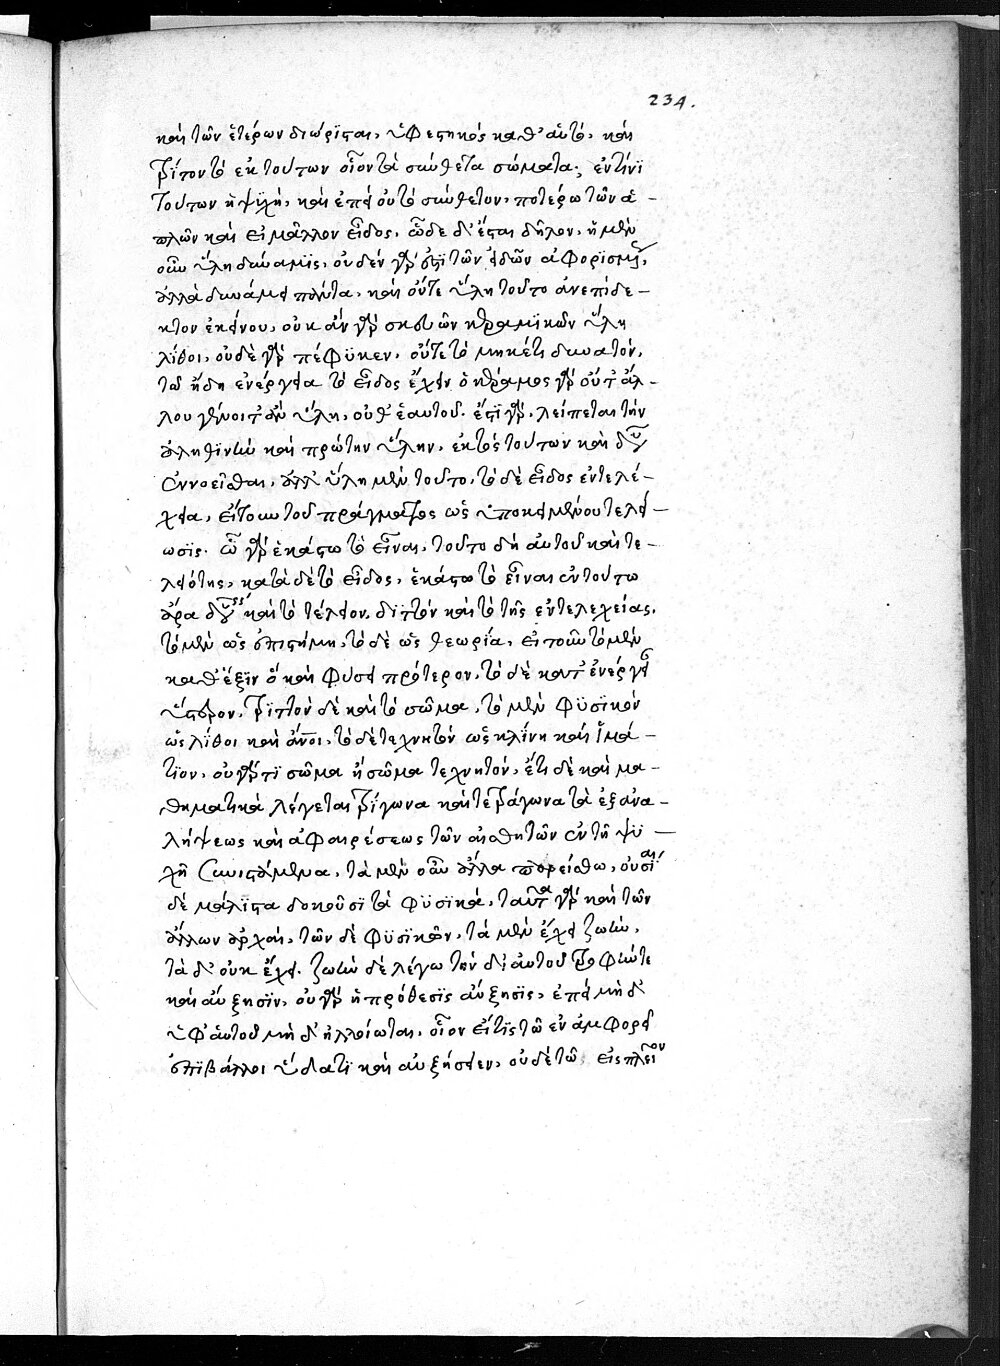 234.
καὶ τῶν ἑτέρων διώρισται, ὑφεστηκὸς καθ' αὑτό, καὶ
τρίτον τὸ ἐκ τούτων οἷον τὰ σύνθετα σώματα; ἐν τίνϊ
τούτων ἡ ψϋχὴ, καὶ ἐπεὶ οὐ τὸ σύνθετον, ποτέρω τῶν ἁ-
πλῶν καὶ εἰ μᾶλλον εἶδος, ὧδε δ' ἔσται δῆλον, ἡ μὲν
οὖν ὕλη δύναμϊς, οὐδὲν γάρ ἐστϊ τῶν εἰδῶν ἀφορϊσμῶ,
ἀλλὰ δυνάμει πάντα, καὶ οὔτε ὕλη τοῦτο ἀνεπίδε-
κτον ἐκείνου, οὐκ ἂν γὰρ σκευῶν κεραμϊκῶν ὕλη
λίθοι, οὐδὲ γὰρ πέφϋκεν, οὔτε τὸ μηκέτι δυνατόν,
τῶ ἤδη ἐνέργεια τὸ εἶδος ἔχειν ὁ κέραμος γὰρ οὔτ' ἄλ-
λου γένοιτ' ἂν ὕλη, οὔθ' ἑαυτοῦ. ἔστϊ γὰρ, λείπεται τὴν
ἀληθϊνὴν καὶ πρώτην ὕλην, ἐκτὸς τούτων καὶ
ἐννοεῖσθαι, ἀλλ' ὕλη μὲν τοῦτο, τὸ δὲ εἶδος ἐντελέ-
χεια, εἴτουν τοῦ πράγματος ὡς ὑποκειμένου τελεί-
ωσϊς. ὧ γὰρ ἑκάστω τὸ εἶναι, τοῦτο δὴ αὐτοῦ καὶ τε-
λειότης, κατὰ δὲ τὸ εἶδος, ἑκάστω τὸ εἶναι ἐν τούτω
ἄρα καὶ τὸ τέλειον. διττὸν καὶ τὸ τῆς ἐντελεχείας,
τὸ μὲν ὡς ἐπιστήμη, τὸ δὲ ὡς θεωρία, εἴτουν τὸ μὲν
καθ' ἕξϊν ὃ καὶ φύσει πρότερον, τὸ δὲ κατ' ἐνέργειαν
ὕστερον, τρϊττὸν δὲ καὶ τὸ σῶμα, τὸ μὲν φϋσϊκὸν
ὡς λίθοι καὶ ἄνοι, τὸ δὲ τεχνητὸν ὡς κλίνη καὶ ἱμά-
τϊον, οὐ γάρ τϊ σῶμα ἢ σῶμα τεχνητόν, ἔτι δὲ καὶ μα-
θηματικὰ λέγεται τρίγωνα καὶ τετράγωνα τὰ ἐξ ἀνα-
λήψεως καὶ ἀφαιρέσεως τῶν αἰσθητῶν ἐν τῆ ψϋ-
χῆ συνιστάμενα, τὰ μὲν οὖν ἄλλα παρείσθω, οὐσίαι
δὲ μάλϊστα δοκοῦσϊ τὰ φϋσϊκά, ταῦτα γὰρ καὶ τῶν
ἄλλων ἀρχαί, τῶν δὲ φϋσϊκῶν, τὰ μὲν ἔχει ζωὴν,
τὰ δ' οὐκ ἔχει. ζωὴν δὲ λέγω τὴν δι' αὐτοῦ τροφήν τε
καὶ αὔξησϊν, οὐ γὰρ ἡ πρόσθεσϊς αὔξησϊς, ἐπεὶ μὴ δ'
ὑφ' ἑαυτοῦ μὴ δ' ἠλλοίωται, οἷον εἴ τϊς τῶ ἐν ἀμφορεῖ
ἐπϊβάλλοι ὕδατϊ καὶ αὐξήσειεν, οὐδὲ τῶ εἰς πλεῖον